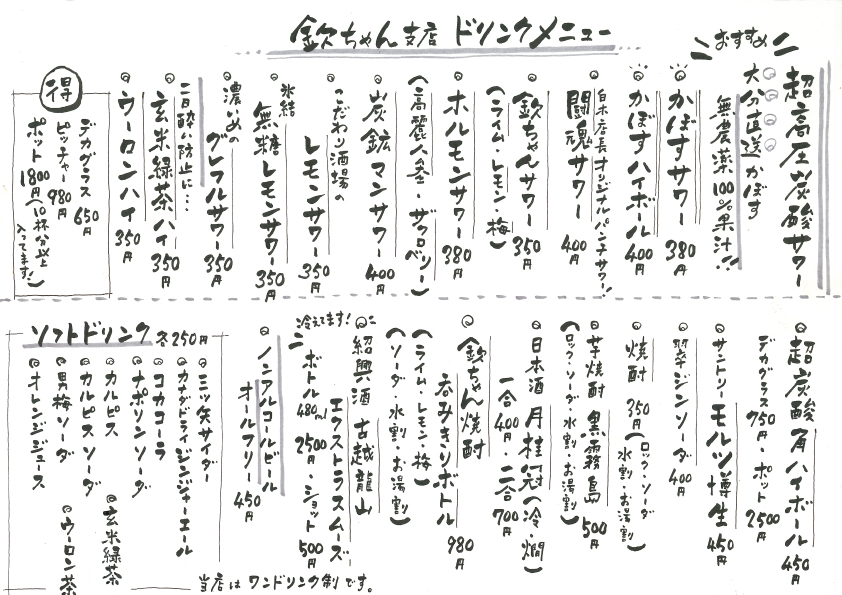 欽ちゃん支店 ドリンクメニュー
おすすめ
超高圧炭酸サワー
大分直送かぼす
無農薬100%果汁!!
かぼすサワー 380円
かぼすハイボール 400円
白木店長オリジナルパンチサワー!
闘魂サワー 400円
欽ちゃんサワー 350円
(ライム・レモン・梅)
ホルモンサワー 380円
(高麗人参・ザクロベリー)
炭鉱マンサワー 400円
こだわり酒場の
レモンサワー 350円
氷結
無糖レモンサワー 350円
濃いめの
グレフルサワー 350円
二日酔い防止に…
玄米緑茶ハイ 350円
ウーロンハイ 350円
得
デカグラス 650円
ピッチャー 980円
ポット 1800円(10杯分以上
入ってます!)
超炭酸角ハイボール 450円
デカグラス 750円・ポット 2500円
サントリーモルツ樽生 450円
翠ジンソーダ 400円
焼酎 350円(ロック・ソーダ
水割・お湯割)
芋焼酎 黒霧島 500円
(ロック・ソーダ・水割・お湯割)
日本酒 月桂冠(冷・燗)
一合 400円・二合 700円
欽ちゃん焼酎
呑みきりボトル 980円
(ライム・レモン・梅)
(ソーダ・水割・お湯割)
紹興酒 古越龍山
エクストラスムーズ
冷えてます!
ボトル480ml 2500円・ショット 500円
ノンアルコールビール
オールフリー 450円
ソフトドリンク 各250円
三ツ矢サイダー
カナダドライジンジャーエール
コカコーラ
ナポリンソーダ
カルピス
カルピスソーダ
男梅ソーダ
オレンジジュース
玄米緑茶
ウーロン茶
当店はワンドリンク制です。